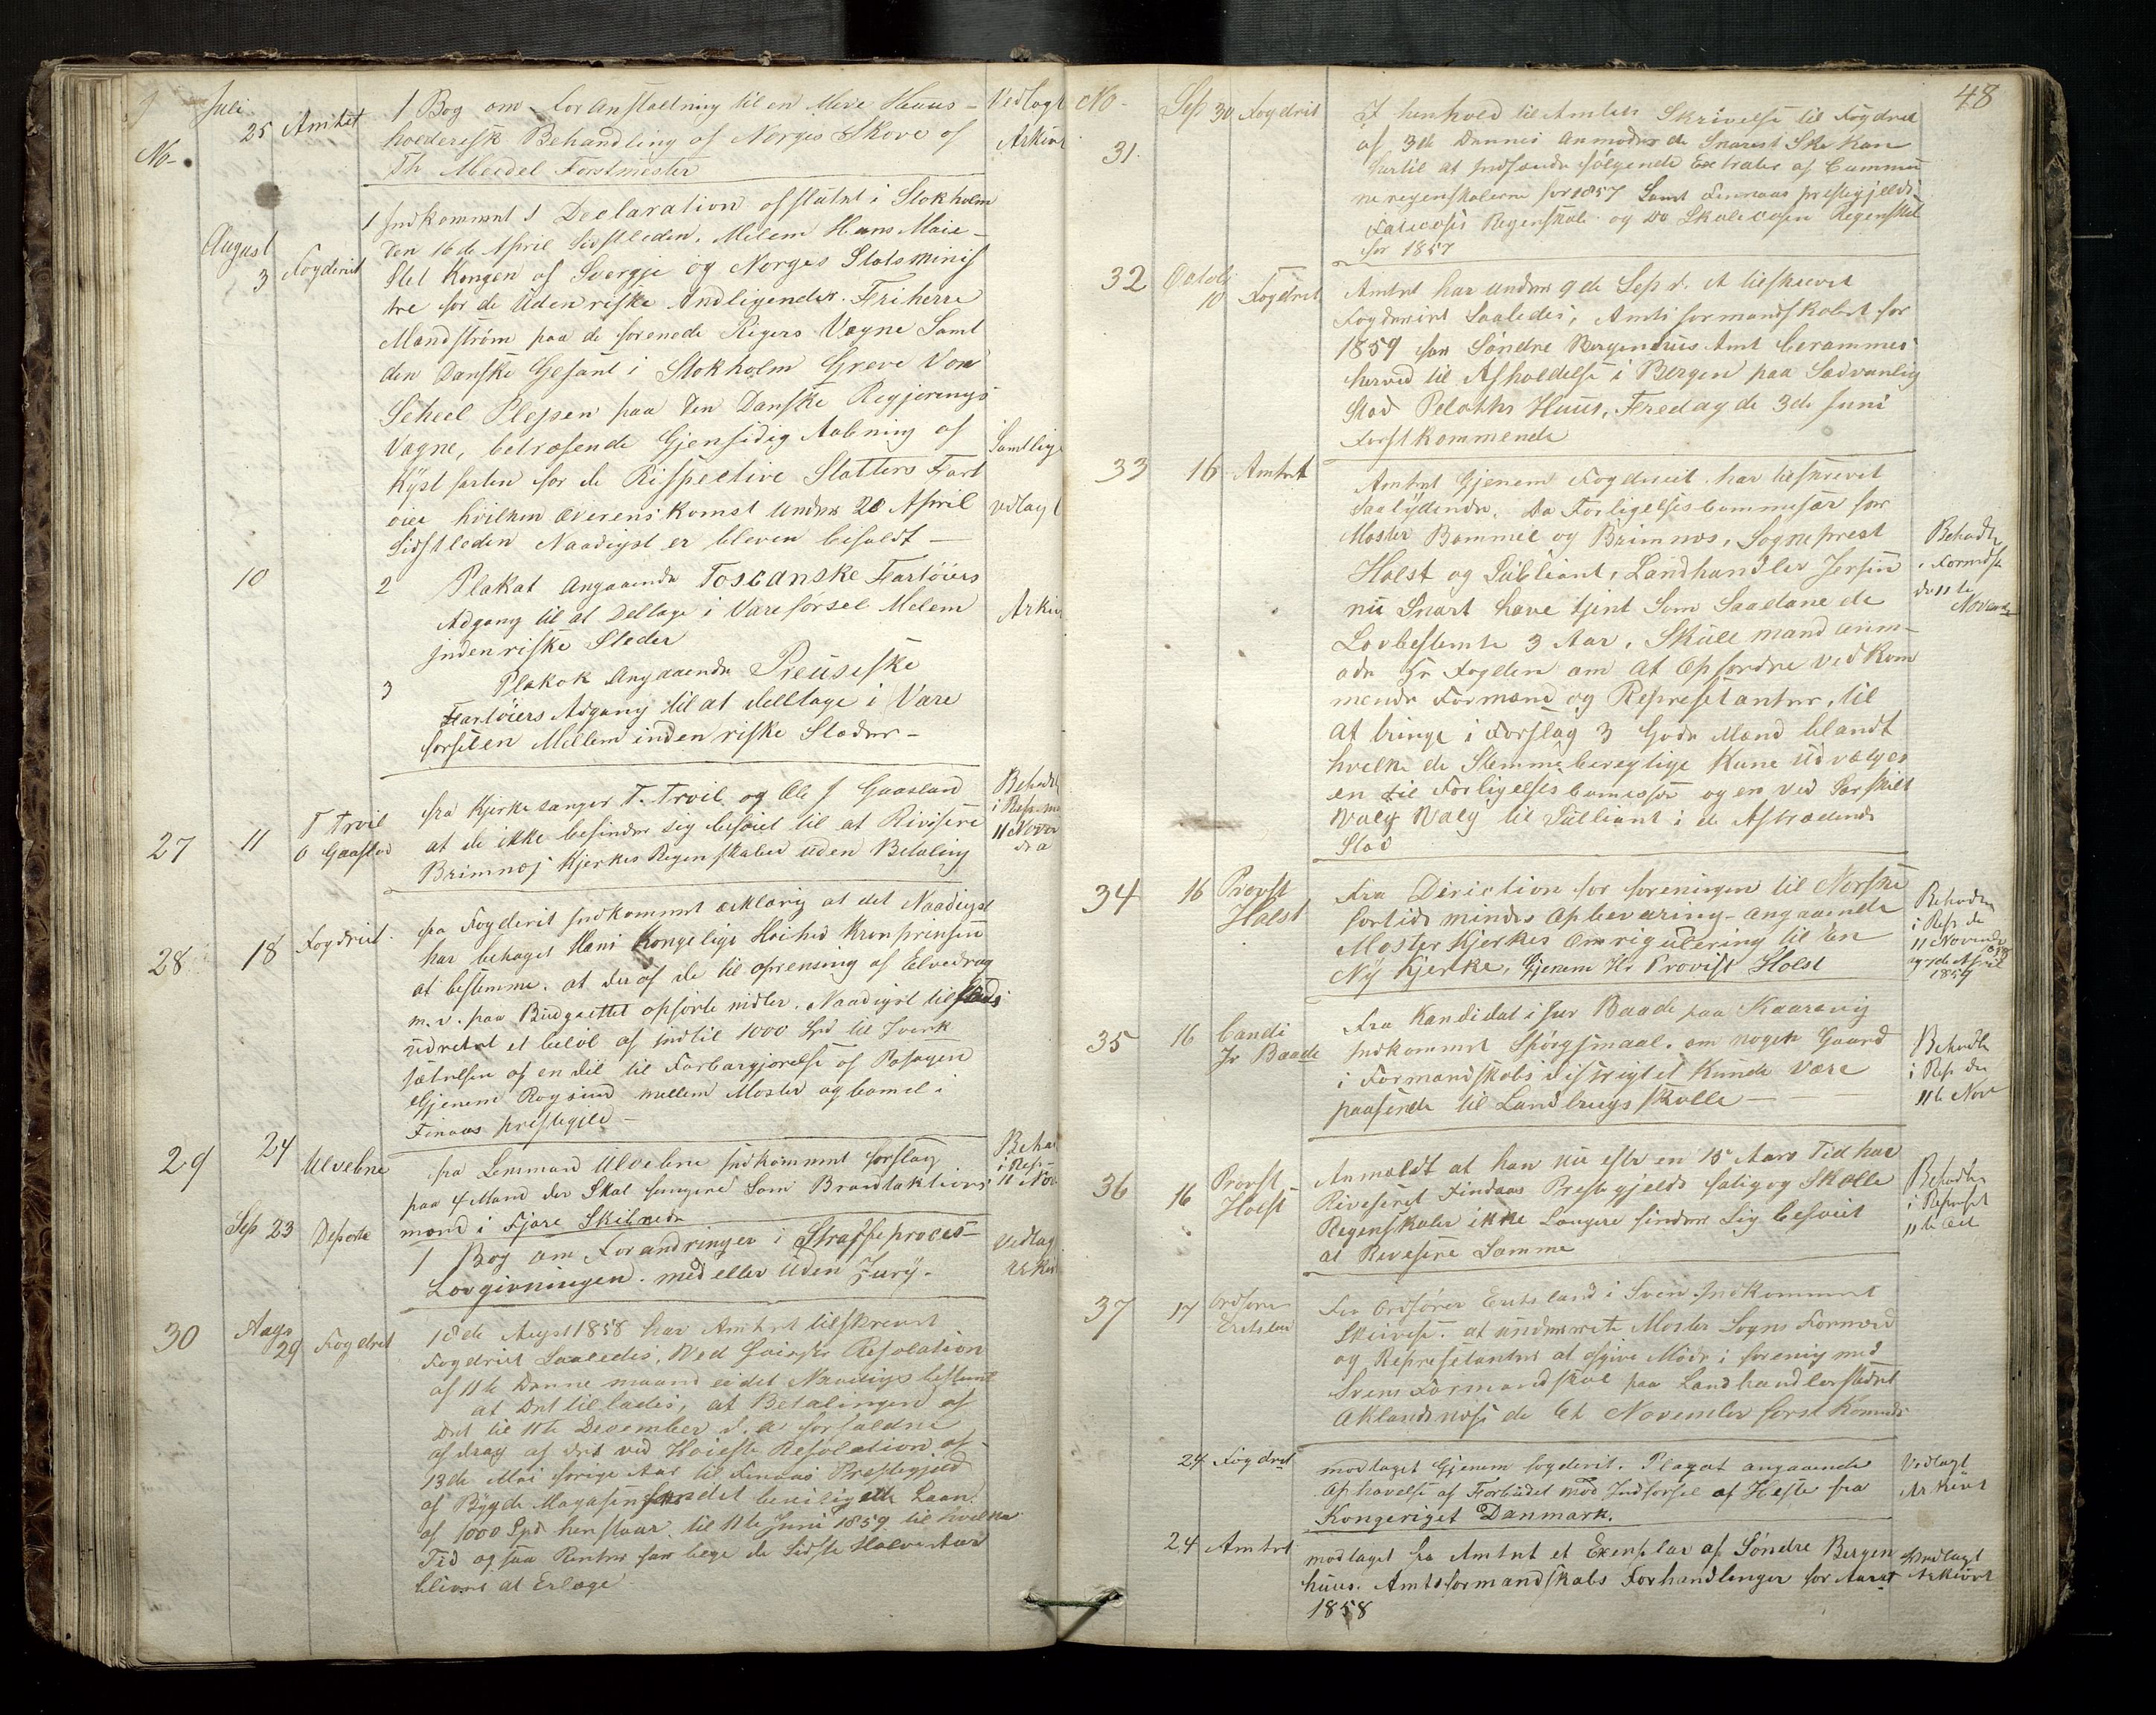 Juli
No-
25 Amtet
1 Bog om foranstaltning til en Mere Huus-
holderisk Behandling af Norges Skove af
Th Meidel Forstmester
Vedlagt
Arkivet
August
3 Fogderit
1 Indkommet 1 Declaration afsluttet i Stokholm
den 16de April Sidstleden, Melem Hans Maie-
stet Kongen af Svergje og Norges Statsminis
tre for de Udenriske Andligender Friherre
Mandstrøm paa de forenede Rigers Vegne Samt
den Danske Gesant i Stokholm Greve Von
Scheel Plessen paa den Danske Regjerings
Vegne, betræfende Gjensidig Aabning af
Kystfarten for de Rispective Statters Fart
øier hvilken Overenskomst under 20 April
Sidstleden Naadigst er bleven bifaldt -
Samtlige
vedlagt
10
2 Plakat Angaaende Toscanske Fartøiers
Adgang til at Deltage i Vareførsel Melem
indenriske Steder
Arkiv
3 Plakok Angaaende Preusiske
Fartøiers Adgang til at delltage i Vare
førselen Mellem indenriske Stæder -
27
11
T Trvil
O Gaasland
fra Kjerkesanger T. Trvil og Ole J Gaasland
at de ikke befinder sig beføiet til at Rivisere
Brimnes Kjerkes Regenskaber uden Betaling
Behadt
i Rep. m
11 Nover
d a
28
18 Fogdrit.
fra Fogderit Indkommet erklæring at det Naadigst
har behaget Hans Kongelige Høihed Kronprinsen
at bestemme. at der af de til oprensing af Elvedrag
m. v. paa Budgættet opførte midler, Naadigst tilstaaes
udredet et beløb af indtil 1000 Spd til Iverk
sættelsen af en del til Farbargjørelse af Pasagen
Gjenem Røgsund mellem Moster og Bømel i
Finaas prestegjeld -
29
24 Ulvebne
fra Lenmand Ulvebne Indkommet forslag
paa 4 Mænd der Skal fungere Som Brandtaktions
mænd i Fjære Skibrede
Behad
i Rep-
11 Nov
Sep 23 Deporte
1 Bog om Forandringer i Straffeproces-
Lovgivningen. med eller uden Jury.
Vedlagt
Arkiv
30
Aags
29 Fogdret
18de Augst 1858 har Amtet tilskrevet
Fogdrit Saaledes, Ved Høieste Resolation
af 11te Denne maaned er det Naadigst bestemt
at Det tillades, at Betalingen af
Det til 11te December d. a. forfaldne
afdrag af det ved Høieste Resolation af
13de Mai forige Aar til Finaas Prestegjeld
af Bygde Magasinfondet bevilgede Laan
af 1000 Spd henstaar til 11te Juni 1859 til hvilken
Tid ogsaa Renter for bege de Sidste Halve Aar
blivet at Erlæge
48
No-
31.
Sep 30 Fogdrit
I henhold til Amtets Skrivelse til Fogdret
af 3de Dennes Anmodes de Snarest Ske Kan
hertil at Indsænde følgende Extrater af Commu
neregenskaberne for 1857 Samt Finnaas prestegjelds
Fatecases Regenskab og Do Skolecasen Regenskab
for 1857
32
Octob
10 Fogdret
Amtet har under 9de Sep d. A tilskrevet
Fogderiet Saaledes, Amtsformandskabet for
1859 for Søndre Bergenhuus Amt berammes
herved til Afholdelse i Bergen paa Sædvanlig
Sted Peloths Huus, Fredag de 3de Juni
Førstkommende
33
16 Amtet
Amtet Gjenem Fogderiet har tilskrevet
Saalydende. Da Forligelsescommisær for
Moster Bømmel og Brimnes, Sogneprest
Holst og Subliant, Landhandler Jersin
nu Snart have tjent Som Saadane de
Lovbestemte 3 Aar, Skulle mand anm-
ode Hr Fogden om At Opfordre vedkom
mende Formænd og Represetanter, til
At bringe i Forslag 3 Gode Mænd blandt
hvilke de Stemmeberegtige Kune Udvælges
en til Forligelsescomisær og en ved Særskilt
Valg Valg til Subliant i de Aftrædende
Sted
Behadt
i Formdsk
de 11te
Novemb
34
16 Provst
Holst
Fra Diriction for foreningen til Norske
fortids minders opbevaring - angaaende
Moster Kjerkes Omrigulering til En
Ny Kjerke, Gjenem Hr Provist Holst
Behadn
i Rep. de
11 Novemb
og 9de April
1859
35
16 Candi
Jr Baade
Fra Kandidat i Jur Baade paa Kaarevig
Indkommet Spørgsmaal. om nogen Gaard
i Formandskabs distrigtet Kunde Være
paasende til Landbrugsskolle -
Behadt
i Rep. den
11te Nov
36
16
Provst
Holst
Anmældt at han nu efter en 15 Aars Tid har
Riviseret Findaas Prestegjelds fatig og Skolle
Regenskaber ikke Længere finder Sig beføiet
at Rivesere Samme
Behadlen
i Represet
11te
37
17 Ordfører
Eritsland
Fra Ordfører Eritsland i Sven Indkommet
Skrivese. at underrete Moster Sogns Formænd
og Represetanter at afgive Møde i forening med
Svens Formandskab paa Landhandlerstedet
Aklandsnæs de 6te November først Komende
24 Fogdret
modtaget Gjenem fogderit. Plagat angaaende
Ophævelse af Forbudet mod Indførsel af Heste fra
Kongeriget Danmark.
Vedlagt
Arkivet
24 Amtet
modtaget fra Amtet et Exenplar af Søndre Bergen
huus. Amtsformandskabs Forhandlinger for Aaret
1858
Vedlagt
Arkivet